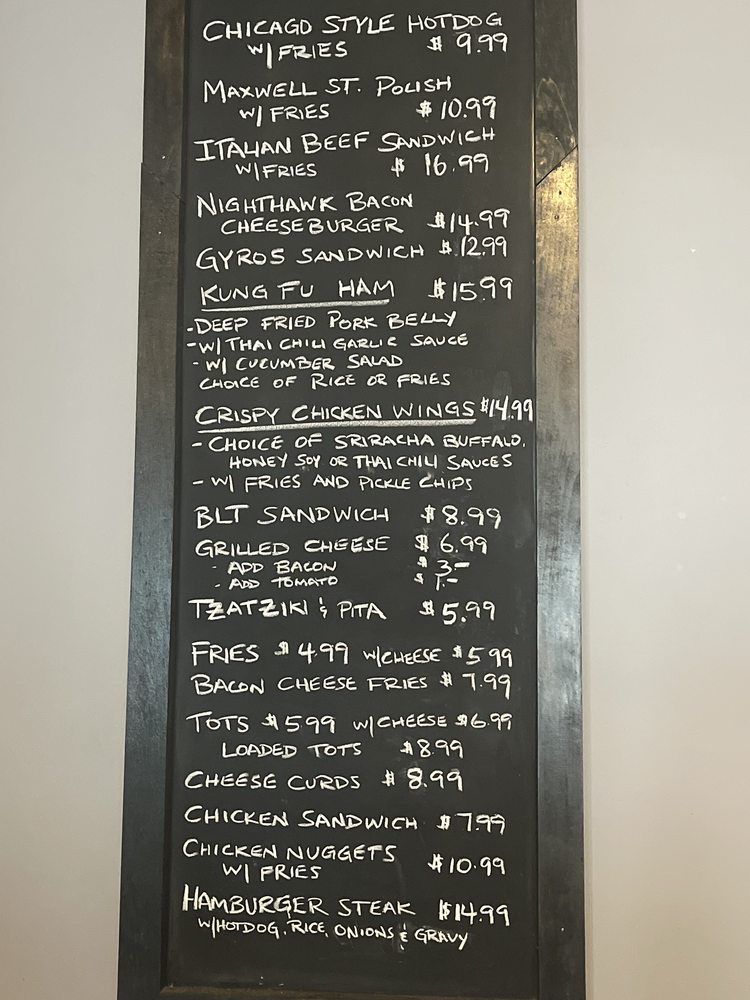 CHICAGO STYLE HOTDOG
W/ FRIES $ 9.99
MAXWELL ST. POLISH
W/ FRIES $ 10.99
ITALIAN BEEF SANDWICH
W/FRIES $ 16.99
NIGHTHAWK BACON
CHEESEBURGER $14.99
GYROS SANDWICH $ 12.99
KUNG FU HAM $15.99
- DEEP FRIED PORK BELLY
- W/ THAI CHILI GARLIC SAUCE
- W/ CUCUMBER SALAD
CHOICE OF RICE OR FRIES
CRISPY CHICKEN WINGS $14.99
- CHOICE OF SRIRACHA BUFFALO,
HONEY SOY OR THAI CHILI SAUCES
- W/ FRIES AND PICKLE CHIPS
BLT SANDWICH $8.99
GRILLED CHEESE $ 6.99
- ADD BACON $ 3.-
- ADD TOMATO $ 1.-
TZATZIKI & PITA $5.99
FRIES $ 4.99 W/CHEESE $5.99
BACON CHEESE FRIES $ 7.99
TOTS $5.99 W/CHEESE $6.99
LOADED TOTS $8.99
CHEESE CURDS $ 8.99
CHICKEN SANDWICH $ 7.99
CHICKEN NUGGETS
W/ FRIES $10.99
HAMBURGER STEAK $14.99
W/HOTDOG, RICE, ONIONS & GRAVY